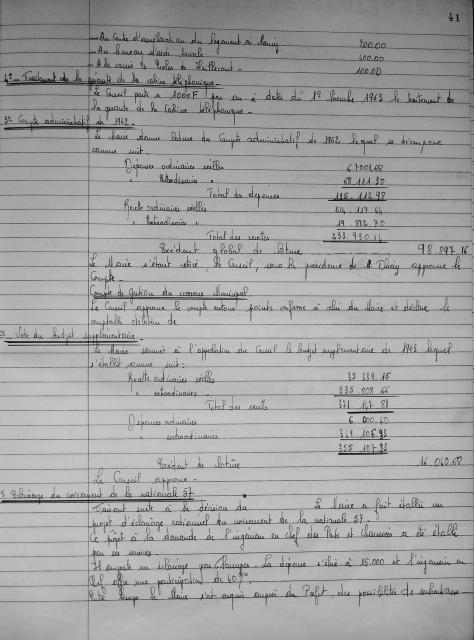 41
- Au Centre d'amélioration du logement à Nancy 200.00
- Au bureau d'aide sociale 400.00
- A la caisse des Ecoles de 100.00
4° - Traitement de la gérante de la cabine téléphonique -
Le Conseil porte à 1000F par an à dater du 1er 1963 le traitement de
la gérante de la Cabine téléphonique -
3° Compte administratif de 1962 -
Le Maire donne lecture du Compte administratif de 1962 lequel se décompose
comme suit -
Dépenses ordinaires réelles
" Extraordinaires " 68.111.30
Total des dépenses 135.112.98
Recette ordinaires réelles 214.117.44
" Extraordinaires " 19.812.70
Total des recettes 233.930.14
Excédent global de clôture 98.817.16
Le Maire s'étant retiré, le Conseil, sous la présidence de M. approuve le
Compte -
Compte de Gestion du receveur Municipal
Le Conseil approuve le compte en tous points conforme à celui du Maire et déclare le
comptable de
- Vote du budget supplémentaire -
Le Maire soumet à l'approbation du Conseil le budget supplémentaire de 1963 lequel
s'établit comme suit :
Recette ordinaires réelles 35.339.15
" extraordinaires " 335.808.66
Total des recettes 371.147.81
Dépenses ordinaires 6.000.40
" extraordinaires 349.106.93
355.107.33
Excédent de clôture 16.040.68
Le Conseil approuve -
Eclairage du croisement de la nationale 57
Faisant suite à la décision du Le Maire a fait établir un
projet d'éclairage rationnel du croisement de la nationale 57 -
Ce projet à la demande de l'ingénieur en chef des Ponts et Chaussées a été établi
par ses services -
Il comporte un éclairage par lampes - La dépense s'élève à 15.000 et l'ingénieur en
Chef offre une participation de 40% -
Entre temps le Maire s'est enquis auprès du Préfet, des possibilités de subventions